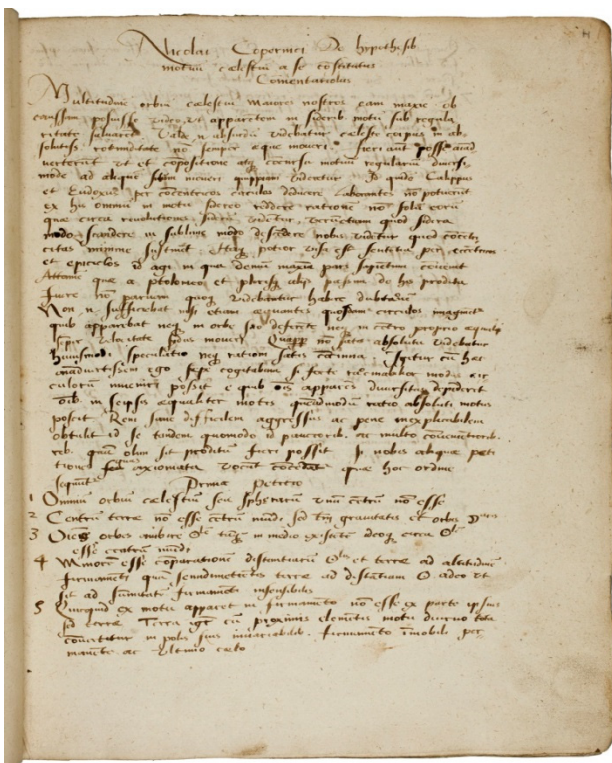 Nicolai Copernici De hypothesib
motuũ cælestiũ a se cõstitutis
Comentariolus
Multitudinẽ orbiũ cælestiũ maiores nostros eam maxiẽ ob
caussam posuisse video, vt apparẽtem in siderib motũ sub regula
ritate saluarẽt. Valde .n. absurdũ videbatur cæleste corpus in ab
solutiss. rotũditate nõ semper æque moueri. fieri aũt posse aĩad
verterũt vt et cõpositione atq cõcursu motuũ regulariũ diuersi
mode ad alique situm moueri quippiam videretur Id quidẽ Calippus
et Eudoxus per cõcentricos circulos deducere laborantes nõ potuerũt
ex his omniũ in motu sidereo reddere rationẽ nõ solũ eorũ
quæ circa reuolutiones siderũ vidẽtur, verũetiam quod sidera
modo scandere in sublime modo descẽdere nobis vidẽtur quod cõcẽtri
citas minime sustinet. Itaq potior visa est sententia per eccẽtricos
et epiciclos id agi in qua demũ maxĩa pars sapiẽtum cõuenit
Attamẽ quæ a ptolomeo et plerisq alijs passim de his prodita
fuere nõ paruam quoq videbãtur habere dubitationẽ
Non .n. sufficiebãt nisi etiam æquantes quosdam circulos imaginarẽt
quib apparebat neq in orbe suo deferẽte neq in cẽtro proprio æquali
sẽper velocitate sidus moueri Quapp nõ satis absoluta videbatur
huiusmodi speculatio neq rationi satis cõcinna Igitur cũ hæc
aĩaduertissem ego sæpe cogitabam si forte rationabilior modus cir
culorũ inueniri possit e quib ois apparẽs diuersitas depẽderet
oĩb in seipsis æqualiter motis quẽadmodũ ratio absoluti motus
poscit Rem sane difficilem aggressus ac pene inexplicabilem
obtulit id se tandem quomodo id paucioribꝫ ac multo cõueniẽtiorib
reb. quam olim sit proditũ fieri possit si nobis aliquæ peti
tiones quas axiomata vocãt cõcedãtur quæ hoc ordine
sequũtr Prima Petitio
1 Omniũ orbiũ cælestiũ seu sphærarũ vnũ cẽtrũ nõ esse
2 Centrũ terræ nõ esse cẽtrũ mũdi sed tm̃ grauitatis et orbis
3 Oẽs orbes ambire tãq in medio existẽtẽ ideoq circa
esse cẽtrũ mũdi
4 Minorẽ esse cõparationẽ distantiarũ et terræ ad altitudinẽ
firmamẽti quã semidimetiẽtis terræ ad distãtiam adeo vt
sit ad sũmitatẽ firmamẽti insensibilis
5 Quicquid ex motu apparet in firmamẽto nõ esse ex parte ipsius
sed terræ Terra igr cũ proximis elemẽtis motu diurno tota
cõuertitur in polis suis inuariabilib firmamẽto ĩmobili per
manẽte ac vltimo cælo